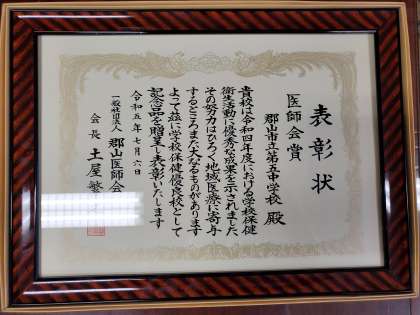 表彰状
医師会賞
郡山市立第五中学校 殿
貴校は令和四年度における学校保健
衛生活動に優秀な成果を示されました
その努力はひろく地域医療に寄与
するところまた大なるものがあります
よって茲に学校保健優良校として
記念品を贈呈し表彰いたします
令和五年七月六日
一般社団法人 郡山医師会
会長 土屋繁